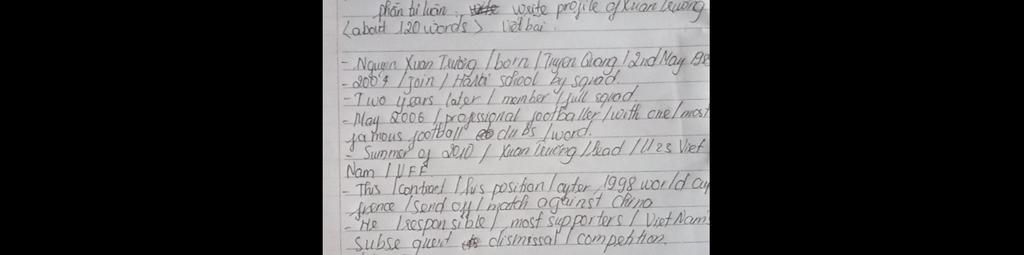 phần tự luận, write profile of Xuan Truong
<about 120 words> Viết bài.
- Nguyen Xuan Truong / born / Tuyen Quang / 2nd May 198
- 2004 / join / school by squad.
- Two years later / member / full squad.
- May 2006 / professional footballer / with one / most
famous football clubs / word.
- Summer of 2010 / Xuan Truong / lead / U23 Viet
Nam / UFF.
- This / contract / his position / after 1998 world cup
frence / send off / match against China
- He / responsible / most supporters / Viet Nam
subse quent dismissal / competition.